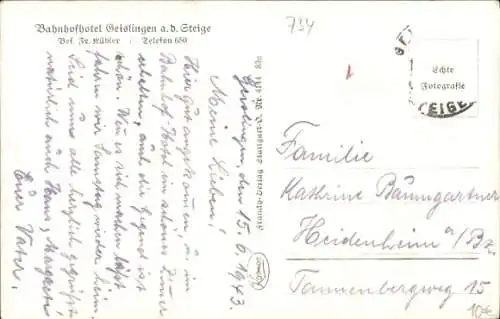 Bahnhofhotel Geislingen a. d. Steige
Bes. Fr. Kübler : Telefon 650
734
Echte
Fotografie
Geislingen, den 15. 6. 1943.
Meine Lieben!
Hier gut angekommen, u. im
Bahnhof Hotel ein schönes Zimer
erhalten, auch die Gegend ist
schön. Wen es sich machen läßt
fahren wir Samstag wieder heim.
Seid nun alle herzlich gegrüßt,
natürlich auch Hans, Margarete
Euer Vater.
Familie
Kathrine Baumgartner
Heidenheim a/Bz
Tannenbergweg 15
10€